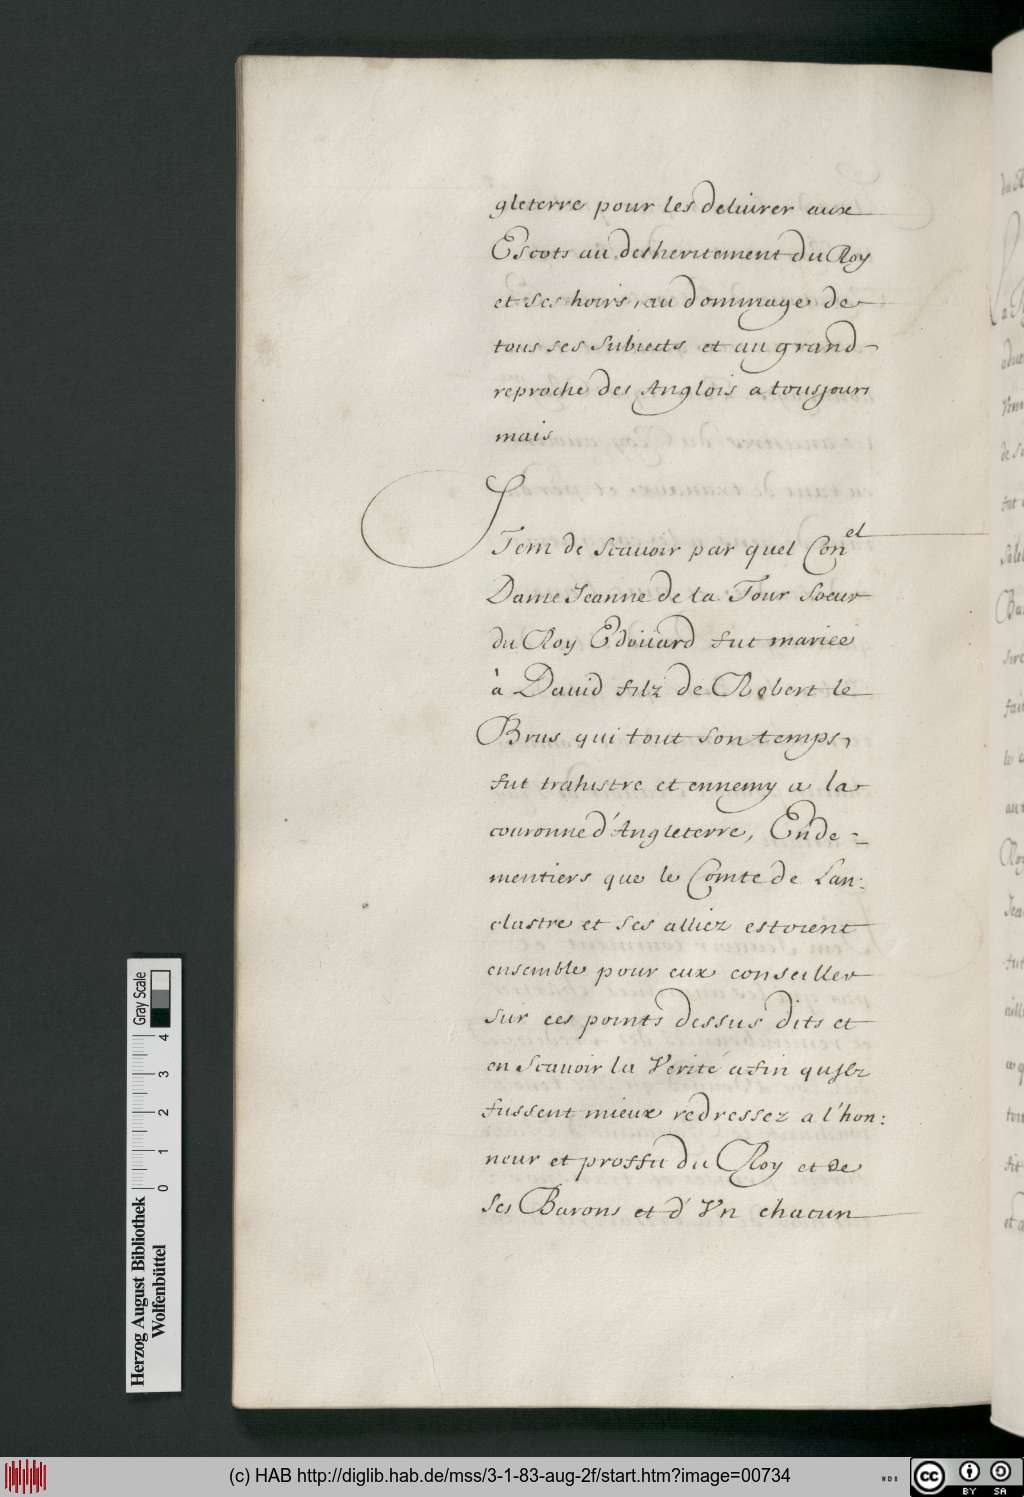 gleterre pour les deliurer aux
Escots au desheritement du Roy
et ses hoirs, au dommage de
tous ses subiects et au grand
reproche des Anglois a tousjours
mais
Item de scauoir par quel Con^el
Dame Jeanne de la Tour soeur
du Roy Edoüard fut mariee
à Dauid filz de Robert le
Brus qui tout son temps,
fut trahistre et ennemy a la
couronne d'Angleterre, Ende=
mentiers que le Comte de Lan:
clastre et ses alliez estoient
ensemble pour eux conseiller
sur ces points dessus dits et
en scauoir la Verité afin qu'ilz
fussent mieux redressez a l'hon:
neur et proffit du Roy et de
ses Barons et d'Vn chacun
Herzog August Bibliothek
Wolfenbüttel
0 1 2 3 4
Gray Scale
(c) HAB http://diglib.hab.de/mss/3-1-83-aug-2f/start.htm?image=00734
WDB
cc BY SA